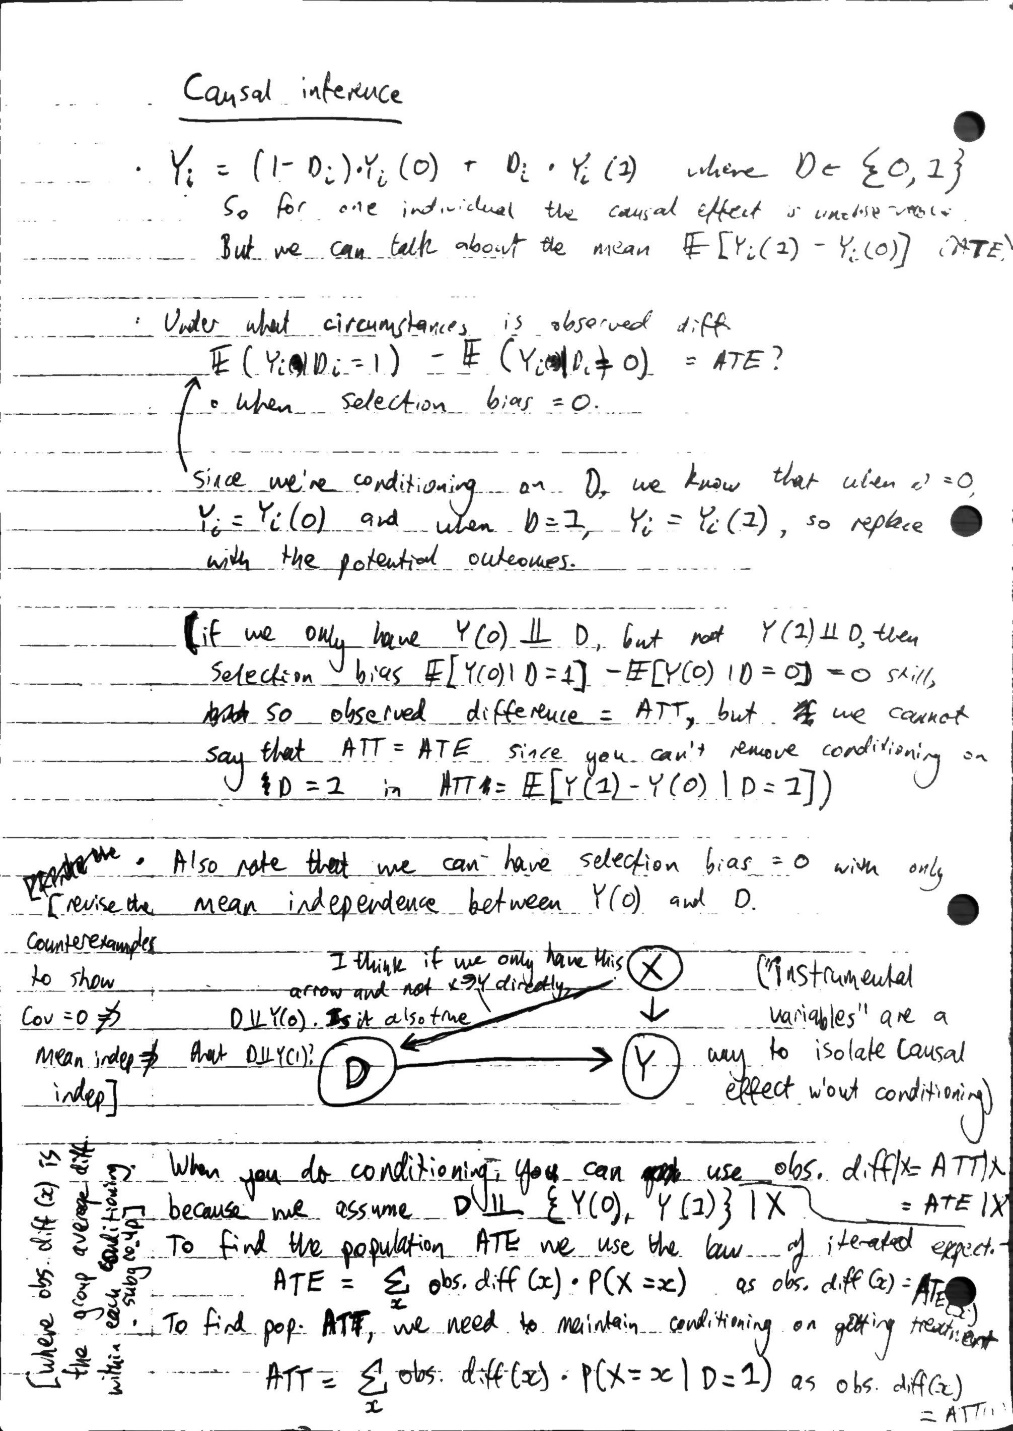 Causal inference
· Yᵢ = (1 - Dᵢ)·Yᵢ(0) + Dᵢ · Yᵢ(1) where D ∈ {0, 1}
So for one individual the causal effect is unobservable.
But we can talk about the mean 𝔼[Yᵢ(1) - Yᵢ(0)] (ATE)
· Under what circumstances is observed diff
𝔼(Yᵢ|Dᵢ = 1) - 𝔼(Yᵢ|Dᵢ = 0) = ATE?
• when selection bias = 0.
Since we're conditioning on D, we know that when D = 0,
Yᵢ = Yᵢ(0) and when D = 1, Yᵢ = Yᵢ(1), so replace
with the potential outcomes.
(if we only have Y(0) ⫫ D, but not Y(1) ⫫ D, then
selection bias 𝔼[Y(0) | D = 1] - 𝔼[Y(0) | D = 0] = 0 still,
so observed difference = ATT, but we cannot
say that ATT = ATE since you can't remove conditioning on
D = 1 in ATT = 𝔼[Y(1) - Y(0) | D = 1])
· Also note that we can have selection bias = 0 with only
mean independence between Y(0) and D.
[revise the
counterexamples
to show
Cov = 0 ⇏
mean indep ⇏
indep]
I think if we only have this
arrow and not x→Y directly,
D⫫Y(0). Is it also true
that D⫫Y(1)?
X
D
Y
("Instrumental
variables" are a
way to isolate causal
effect w'out conditioning)
When you do conditioning, you can use obs. diff|X = ATT|X
= ATE|X
because we assume D ⫫ {Y(0), Y(1)} | X
To find the population ATE we use the law of iterated expect.
ATE = Σₓ obs. diff(x) · P(X = x) as obs. diff(x) = ATE(x)
· To find pop. ATT, we need to maintain conditioning on getting treatment
ATT = Σₓ obs. diff(x) · P(X = x | D = 1) as obs. diff(x)
= ATT(x)
[where obs. diff(x) is
the group average diff.
within each conditioning
subgroup]